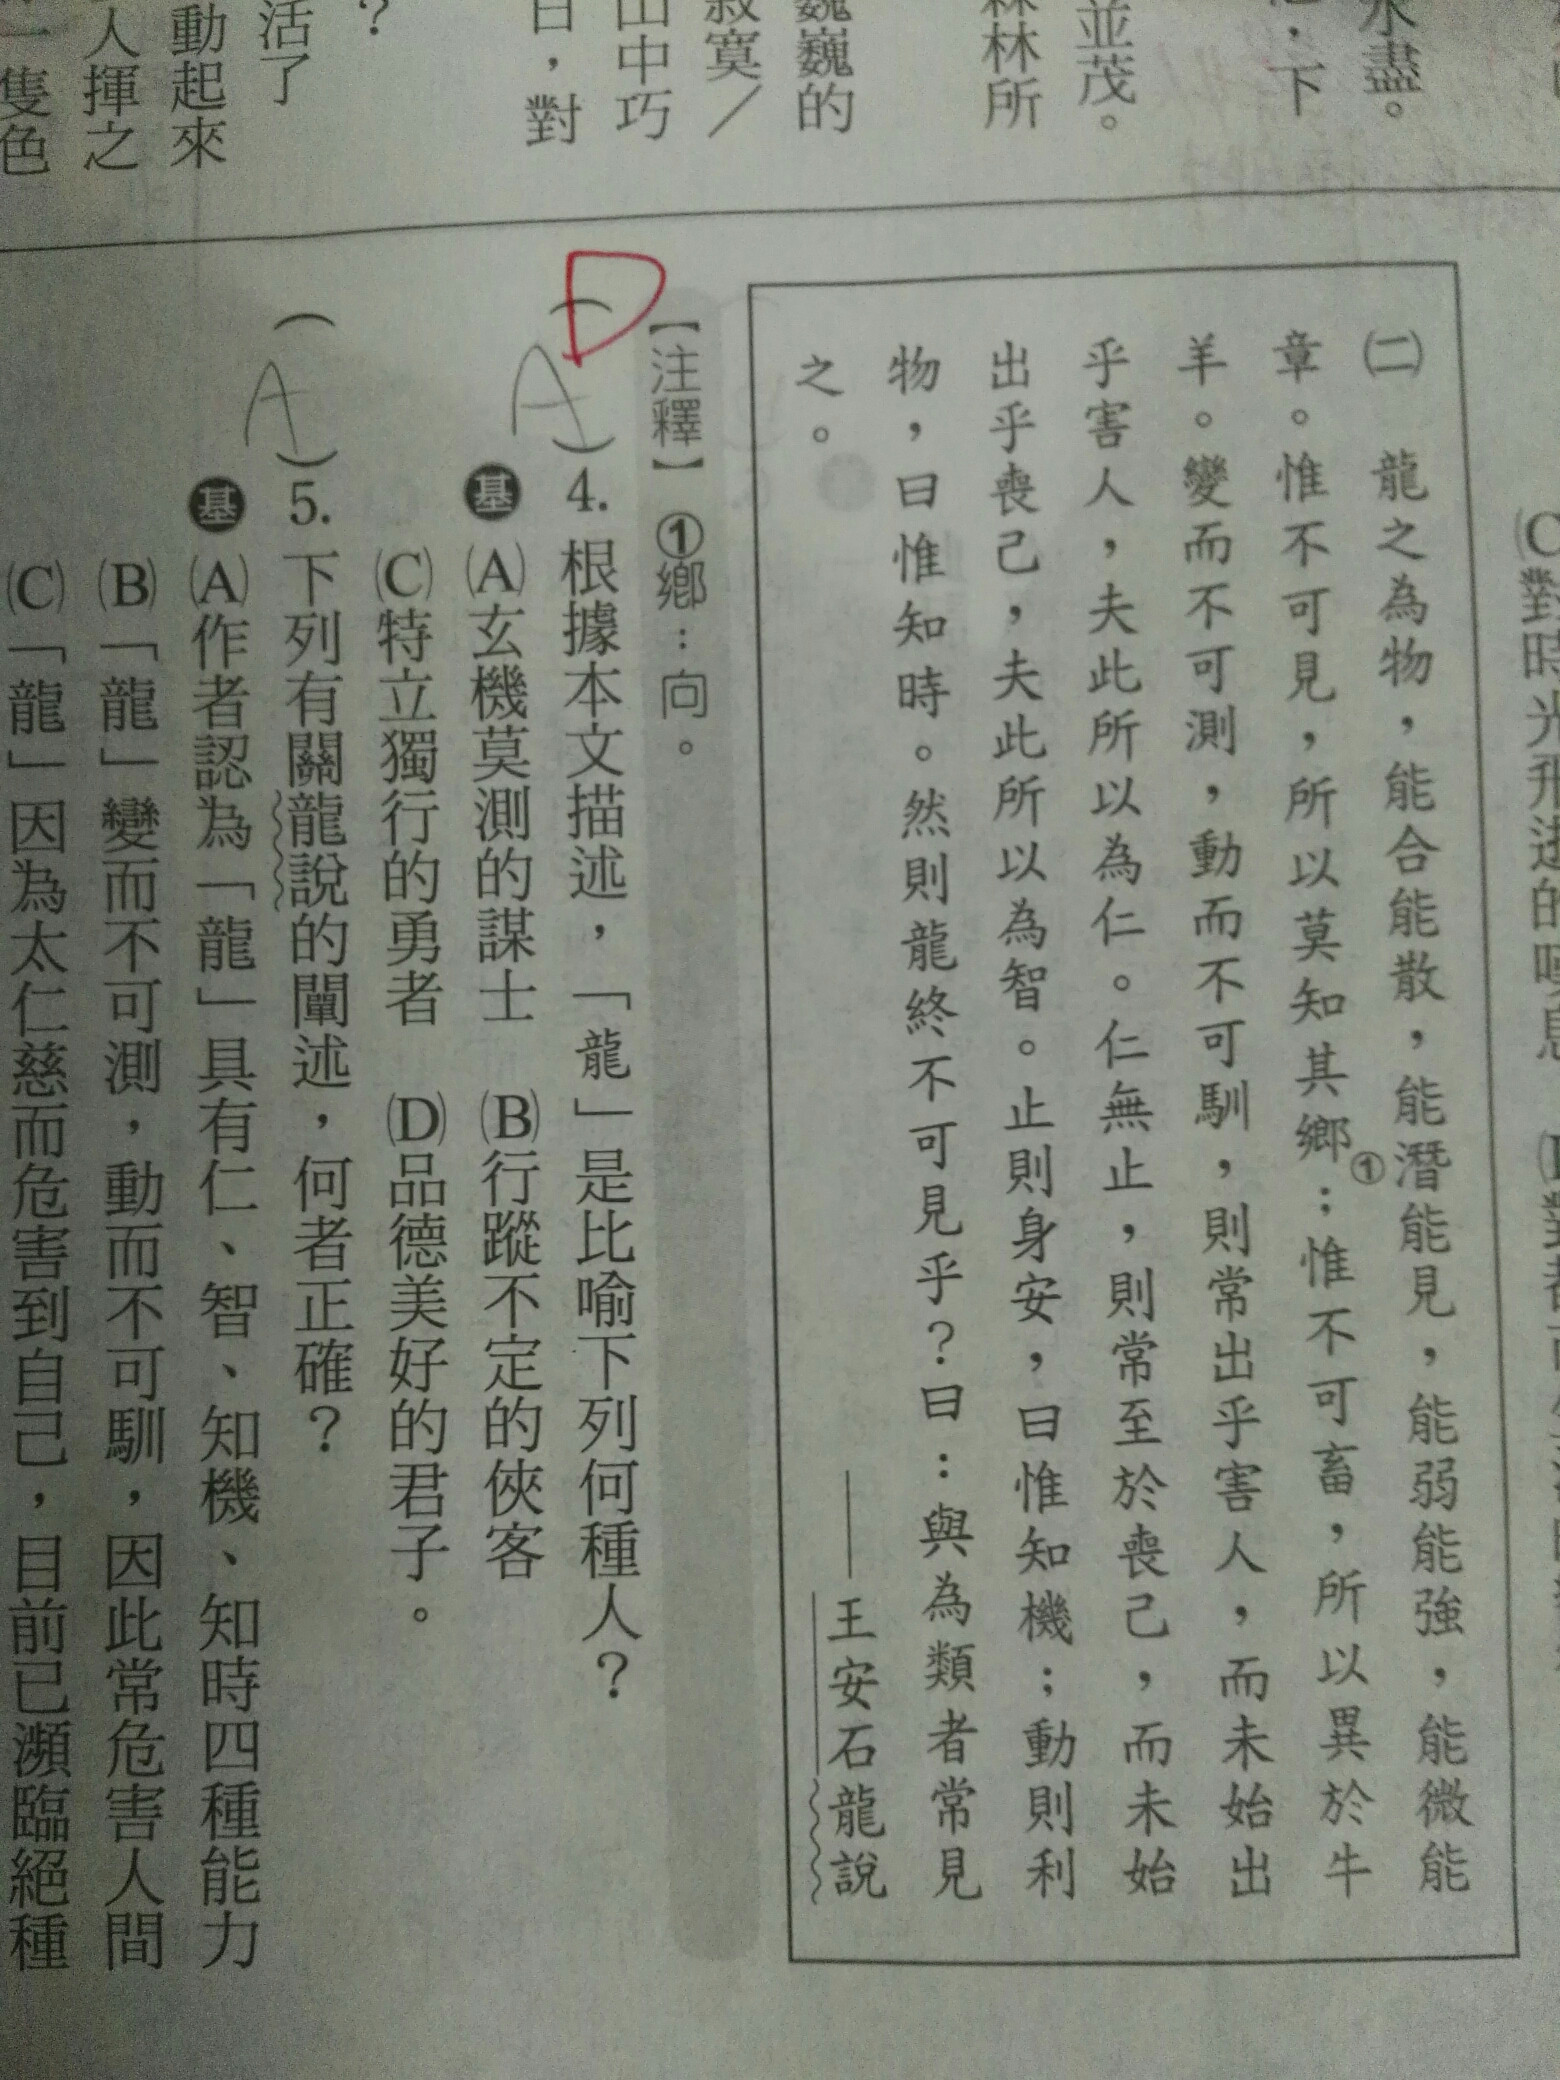 水盡。
，下
並茂。
林林所
巍巍的
寂寞／
山中巧
日，對
？
活了
動起來
人揮之
一隻色
㈡　龍之為物，能合能散，能潛能見，能弱能強，能微能
章。惟不可見，所以莫知其鄉①；惟不可畜，所以異於牛
羊。變而不可測，動而不可馴，則常出乎害人，而未始出
乎害人，夫此所以為仁。仁無止，則常至於喪己，而未始
出乎喪己，夫此所以為智。止則身安，曰惟知機；動則利
物，曰惟知時。然則龍終不可見乎？曰：與為類者常見
之。
——王安石龍說
【注釋】①鄉：向。
D
(A)4.根據本文描述，「龍」是比喻下列何種人？
基 (A)玄機莫測的謀士 (B)行蹤不定的俠客
(C)特立獨行的勇者 (D)品德美好的君子。
(A)5.下列有關龍說的闡述，何者正確？
基 (A)作者認為「龍」具有仁、智、知機、知時四種能力
(B)「龍」變而不可測，動而不可馴，因此常危害人間
(C)「龍」因為太仁慈而危害到自己，目前已瀕臨絕種